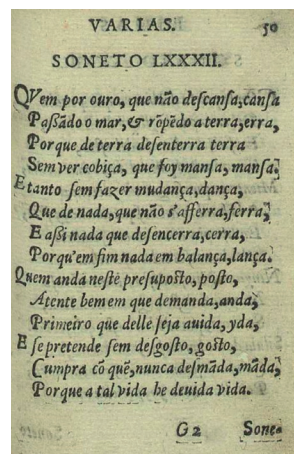 VARIAS. 50
SONETO LXXXII.
QVem por ouro, que não descansa, cansa
Passãdo o mar, & rõpẽdo a terra, erra,
Porque de terra desenterra terra
Sem ver cobiça, que foy mansa, mansa.
E tanto sem fazer mudança, dança,
Que de nada, que não s'afferra, ferra,
E assi nada que desencerra, cerra,
Porqu'em fim nada em balança, lança.
Quem anda neste presuposto, posto,
Atente bem em que demanda, anda,
Primeiro que delle seja auida, yda,
E se pretende sem desgosto, gosto,
Cumpra cõ quẽ, nunca desmãda, mãda,
Porque a tal vida he deuida vida.
G2 Sone-